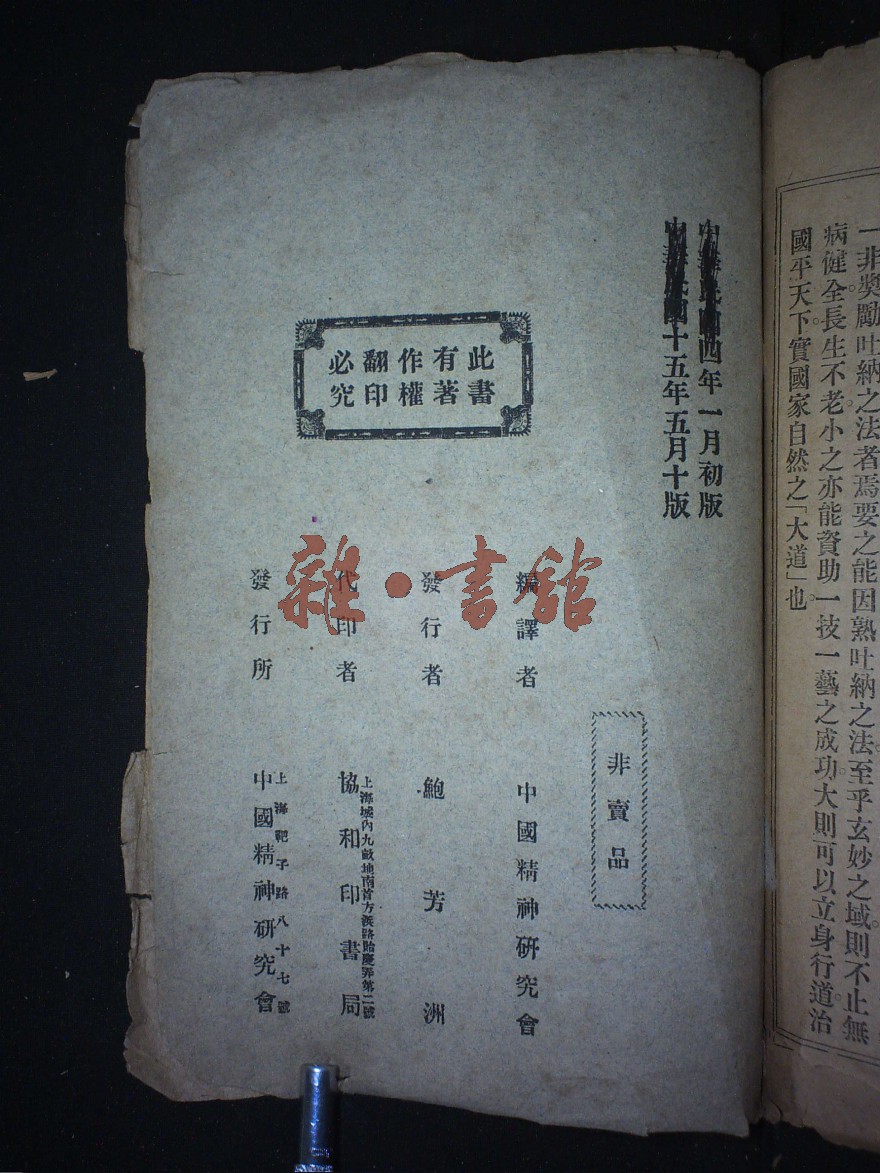 一非獎勵吐納之法者焉要之能因熟吐納之法。至乎玄妙之域則不止無
病健全。長生不老。小之亦能資助一技一藝之成功。大則可以立身行道治
國平天下實國家自然之「大道」也
四年一月初版
國十五年五月十版
此書
有著
作權
翻印
必究
非賣品
編譯者 中國精神研究會
發行者 鮑芳洲
代印者 上海城內九畝地南首方浜路貽慶弄第二號
協和印書局
發行所 上海靶子路八十七號
中國精神研究會
雜·書館